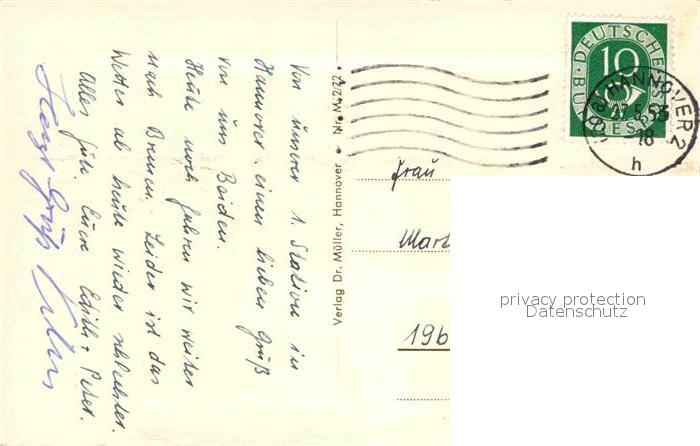 Von unserer 1. Station in
Hannover einen lieben Gruß
von uns Beiden.
Heute noch fahren wir weiter
nach Bremen. Leider ist das
Wetter ab heute wieder schlechter.
Alles gute Eure Edith + Peter.
Herzl. Gruß
Verlag Dr. Müller, Hannover • Nr. M 2/22 •
DEUTSCHE BUNDESPOST
10
HANNOVER 2
18
h
Frau
Mart
196
privacy protection
Datenschutz